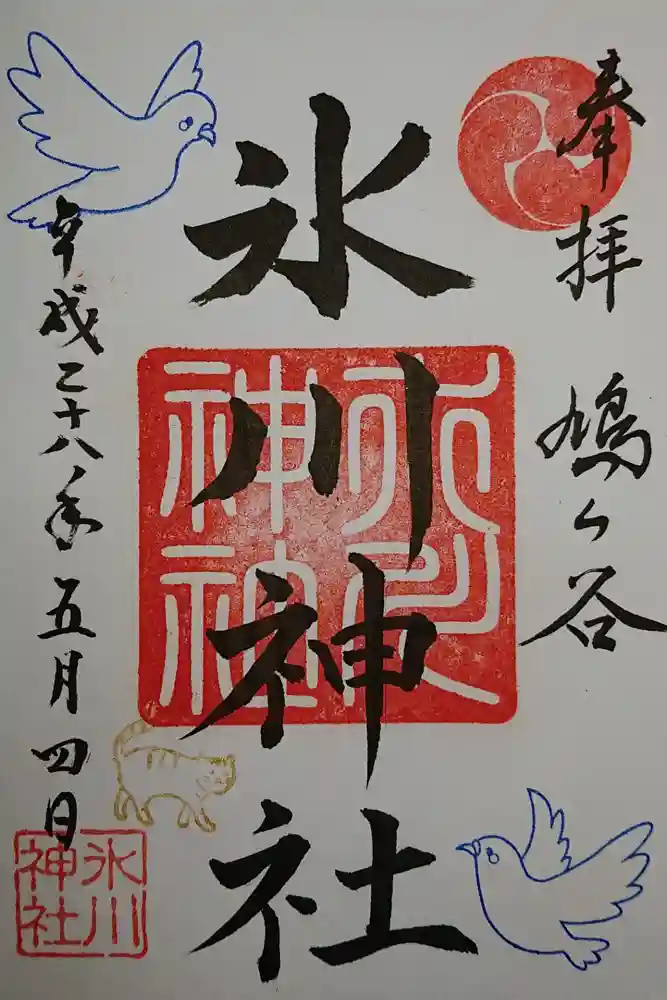 奉拝 鳩ヶ谷
氷川神社
氷川神社
平成二十八年五月四日
氷川神社